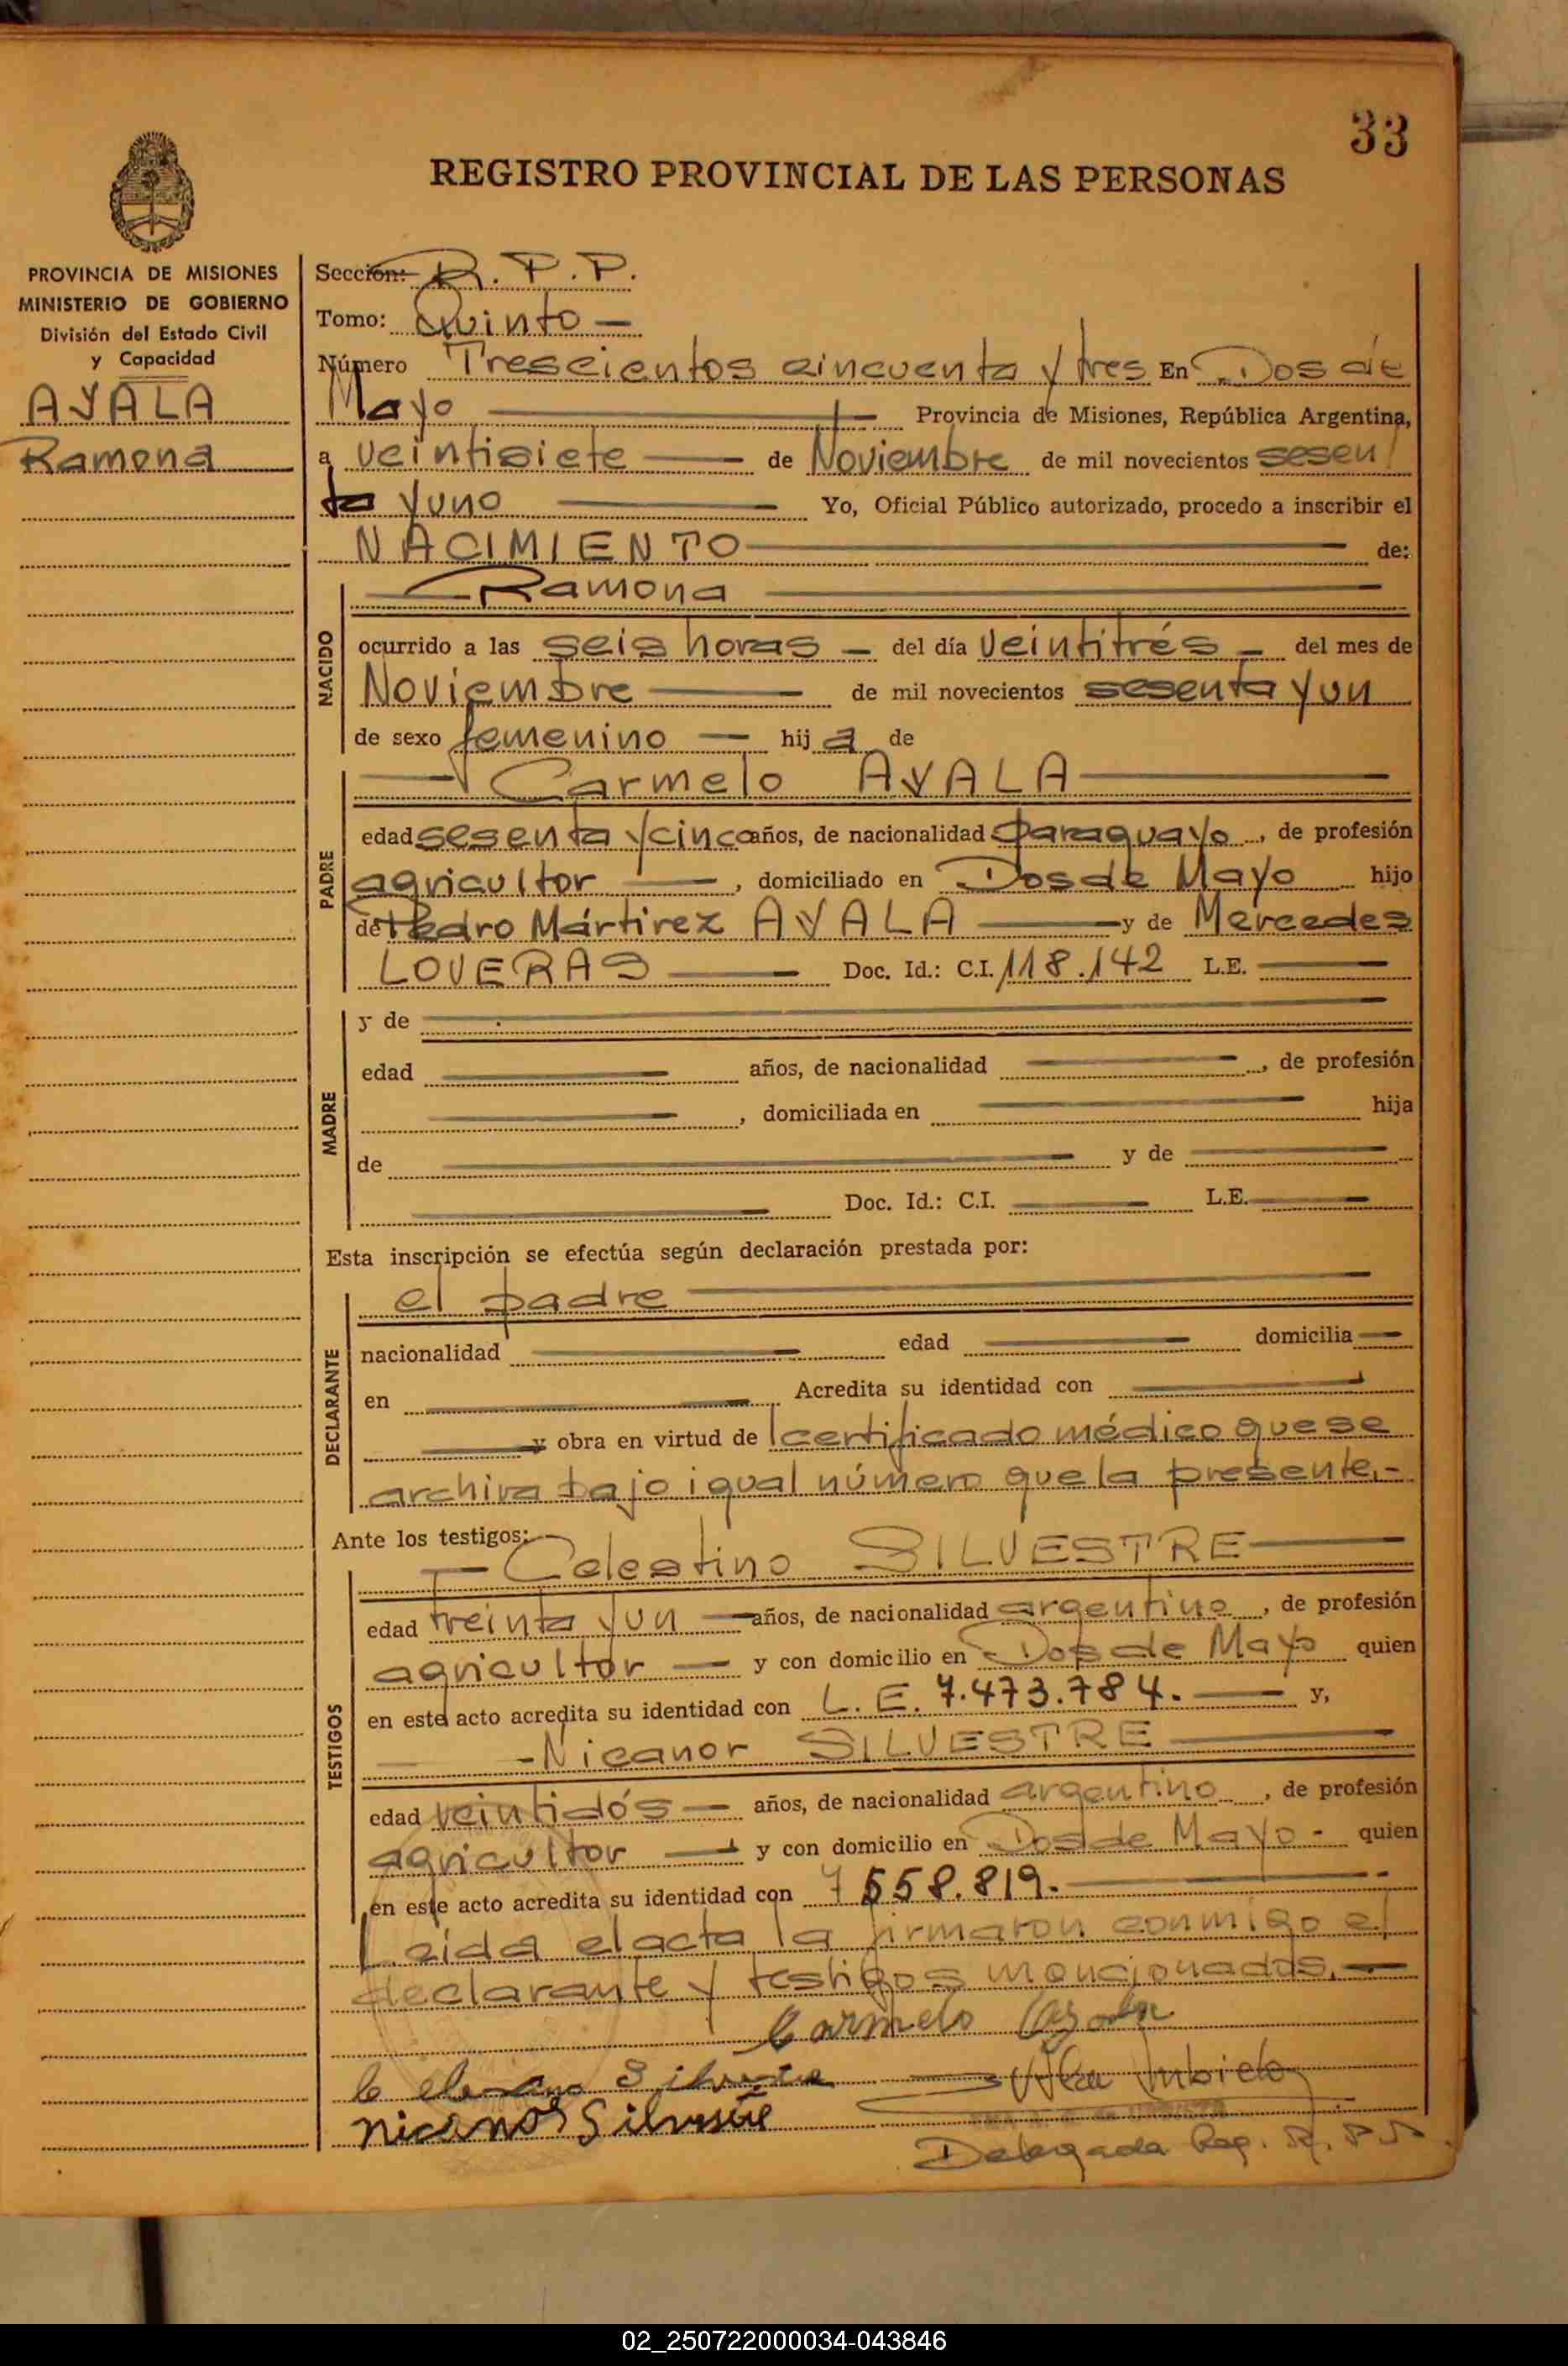 33
REGISTRO PROVINCIAL DE LAS PERSONAS
PROVINCIA DE MISIONES
MINISTERIO DE GOBIERNO
División del Estado Civil
y Capacidad
AYALA
Ramona
Sección: R.P.P.
Tomo: Quinto
Número Trescientos cincuenta y tres En Dos de
Mayo Provincia de Misiones, República Argentina,
a veintisiete de Noviembre de mil novecientos sesen
ta y uno Yo, Oficial Público autorizado, procedo a inscribir el
NACIMIENTO de:
NACIDO
Ramona
ocurrido a las seis horas del día veintitrés del mes de
Noviembre de mil novecientos sesenta y un
de sexo femenino hij a de
PADRE
Carmelo AYALA
edad sesenta y cinco años, de nacionalidad paraguayo, de profesión
agricultor, domiciliado en Dos de Mayo hijo
de Pedro Mártirez AYALA y de Mercedes
LOVERAS Doc. Id.: C.I. 118.142 L.E.
MADRE
y de
edad años, de nacionalidad , de profesión
, domiciliada en hija
de y de
Doc. Id.: C.I. L.E.
Esta inscripción se efectúa según declaración prestada por:
DECLARANTE
el padre
nacionalidad edad domicilia
en Acredita su identidad con
y obra en virtud de l certificado médico que se
archiva bajo igual número que la presente.-
Ante los testigos:
TESTIGOS
Celestino SILVESTRE
edad treinta y un años, de nacionalidad argentino, de profesión
agricultor y con domicilio en Dos de Mayo quien
en este acto acredita su identidad con L.E. 7.473.784. y,
Nicanor SILVESTRE
edad veintidós años, de nacionalidad argentino, de profesión
agricultor y con domicilio en Dos de Mayo - quien
en este acto acredita su identidad con 7 558.819.
Leida el acta la firmaron conmigo el
declarante y testigos mencionados.
Carmelo Ayala
Silvestre
nicanor Silvestre
Delegada Rep. R.P.P.
02_250722000034-043846